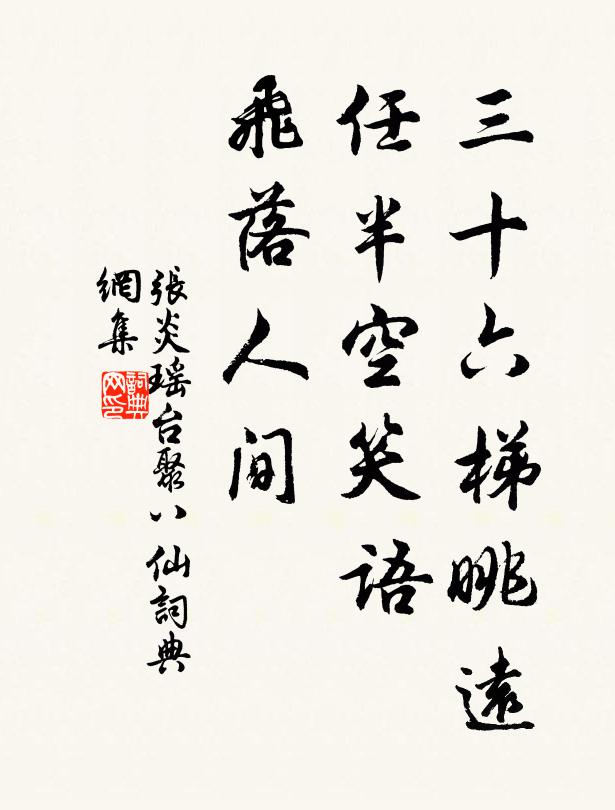 三十六梯眺遠
任半空笑語
飛落人間
張炎瑶台聚八仙詞典
網集
詞典
网印